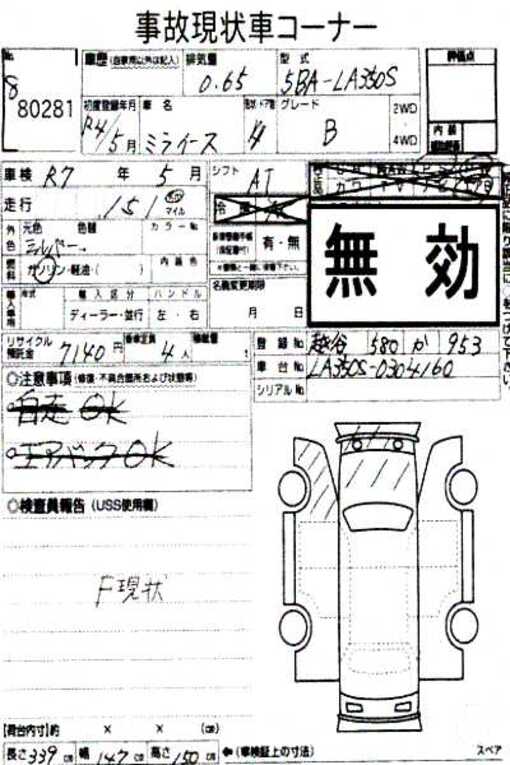 事故現状車コーナー
No. 8 80281
車歴 (自家用以外は記入) 排気量 0.65 型式 5BA-LA350S 評価点
初度登録年月 R4/5月 車名 ミライース 形状・ドア数 4 グレード B 2WD 4WD
内装
車検 R7 年 5月 シフト AT
走行 151 マイル
外色 元色 シルバー 色替 カラーNo.
有・無
無効
燃料 ガソリン・軽油・( ) 内装色
名義変更期限 月 日
輸入車用 年式 輸入区分 ハンドル
ディーラー・並行 左・右
リサイクル預託金 7140円 乗車定員 4人 積載量 t
登録No. 越谷 580 か 953
車台No. LA350S-0304160
シリアルNo.
◎注意事項 (修復・不具合箇所および状態等)
自走 OK
エアバック OK
◎検査員報告 (USS使用欄)
F現状
【荷台内寸】約 × × (cm)
長さ 339 cm 幅 147 cm 高さ 150 cm ←(車検証上の寸法) スペア